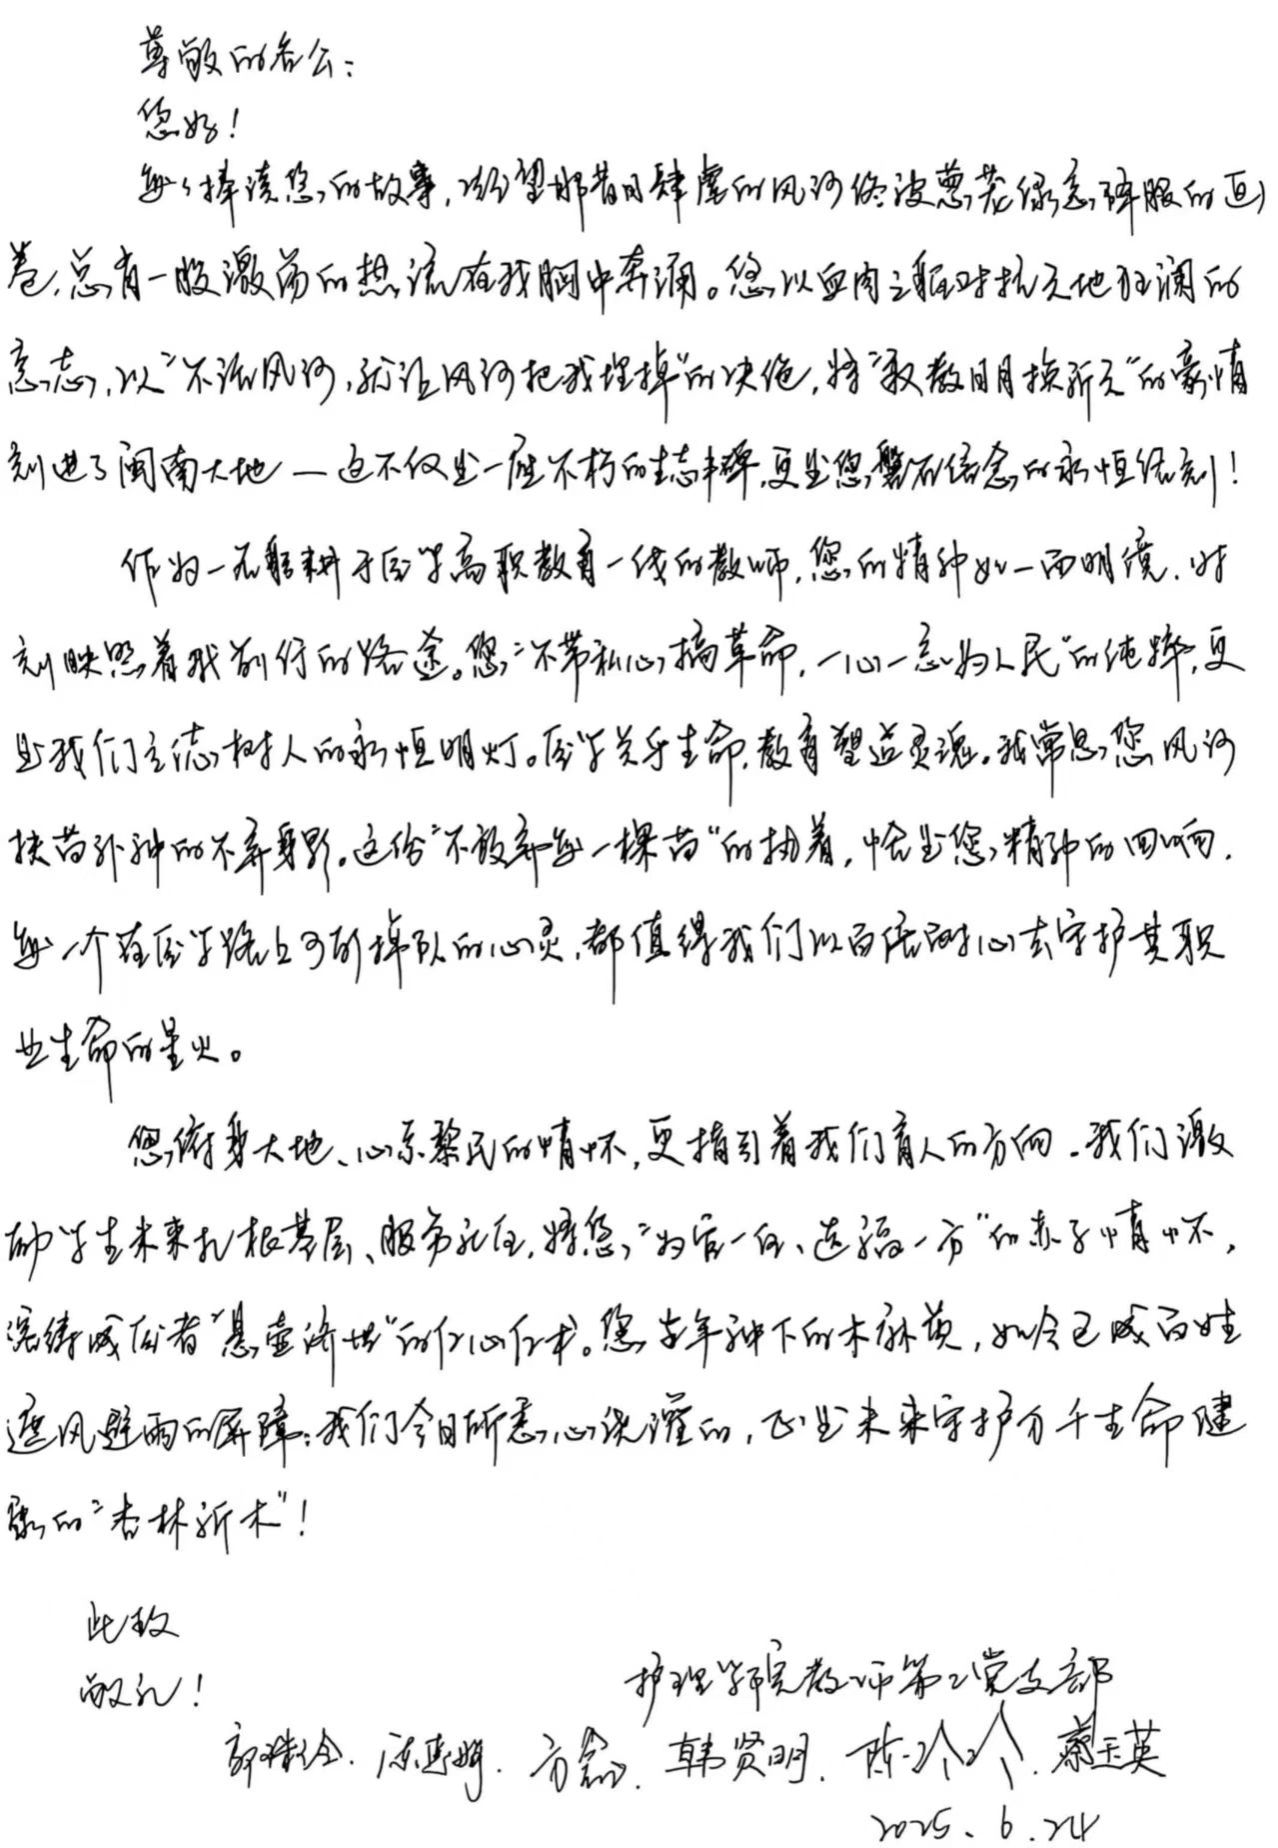 尊敬的谷公：
您好！
每每捧读您的故事，凝望那昔日肆虐的风沙终被葱茏绿意降服的画
卷，总有一股激荡的热流在我胸中奔涌。您以血肉之躯对抗天地狂澜的
意志，以“不治风沙，就让风沙把我埋掉”的决绝，将“敢教日月换新天”的豪情
刻进了闽南大地—这不仅是一座不朽的生态丰碑，更是您磐石信念的永恒镌刻！
作为一名躬耕于医学高职教育一线的教师，您的精神如一面明镜，时
刻映照着我前行的路途。您“不带私心搞革命，一心一意为人民”的纯粹，更
是我们立德树人的永恒明灯。医学关乎生命，教育塑造灵魂。我常思您风沙
扶苗补种的不弃身影。这份“不放弃每一棵苗”的执着，恰是您精神的回响，
每一个在医学路上可能掉队的心灵，都值得我们以百倍耐心去守护其职
业生命的星火。
您俯身大地、心系黎民的情怀，更指引着我们育人的方向。我们激
励学生未来扎根基层、服务社区，将您“为官一任、造福一方”的赤子情怀，
演绎成医者“悬壶济世”的仁心仁术。您当年种下的木麻黄，如今已成百姓
遮风避雨的屏障；我们今日所悉心浇灌的，正是未来守护万千生命健
康的“杏林新木”！
此致
敬礼！
护理学院教师第二党支部
方磊、韩贤明、陈㳕、蔡玉英
2025.6.24